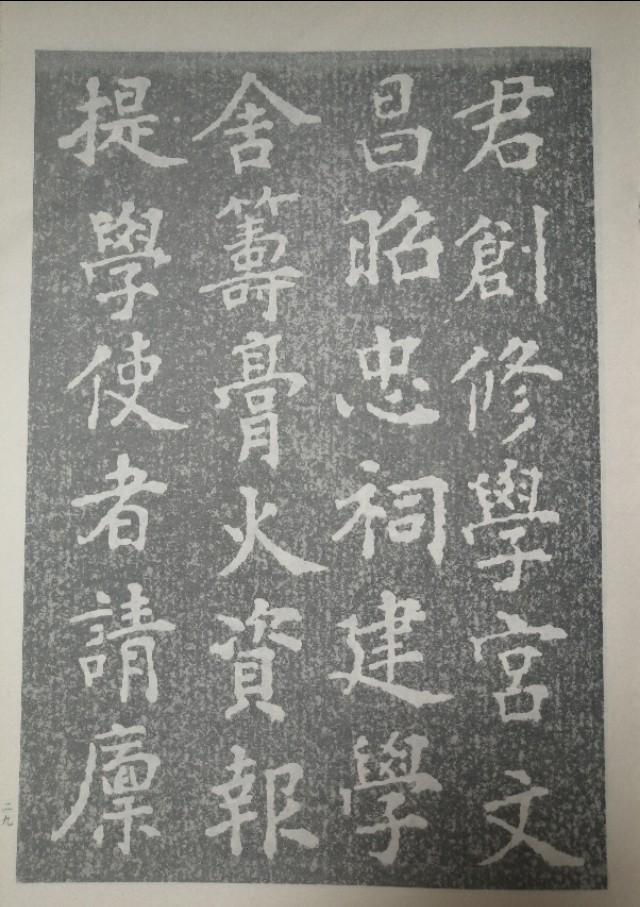 君創修學宮文
昌昭忠祠建學
舍籌膏火資報
提學使者請廩
二九